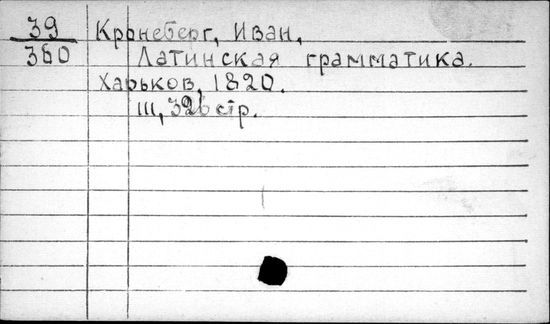 39 Кронеберг, Иван,
380 Латинская грамматика.
Харьков, 1820.
III, 326 стр.